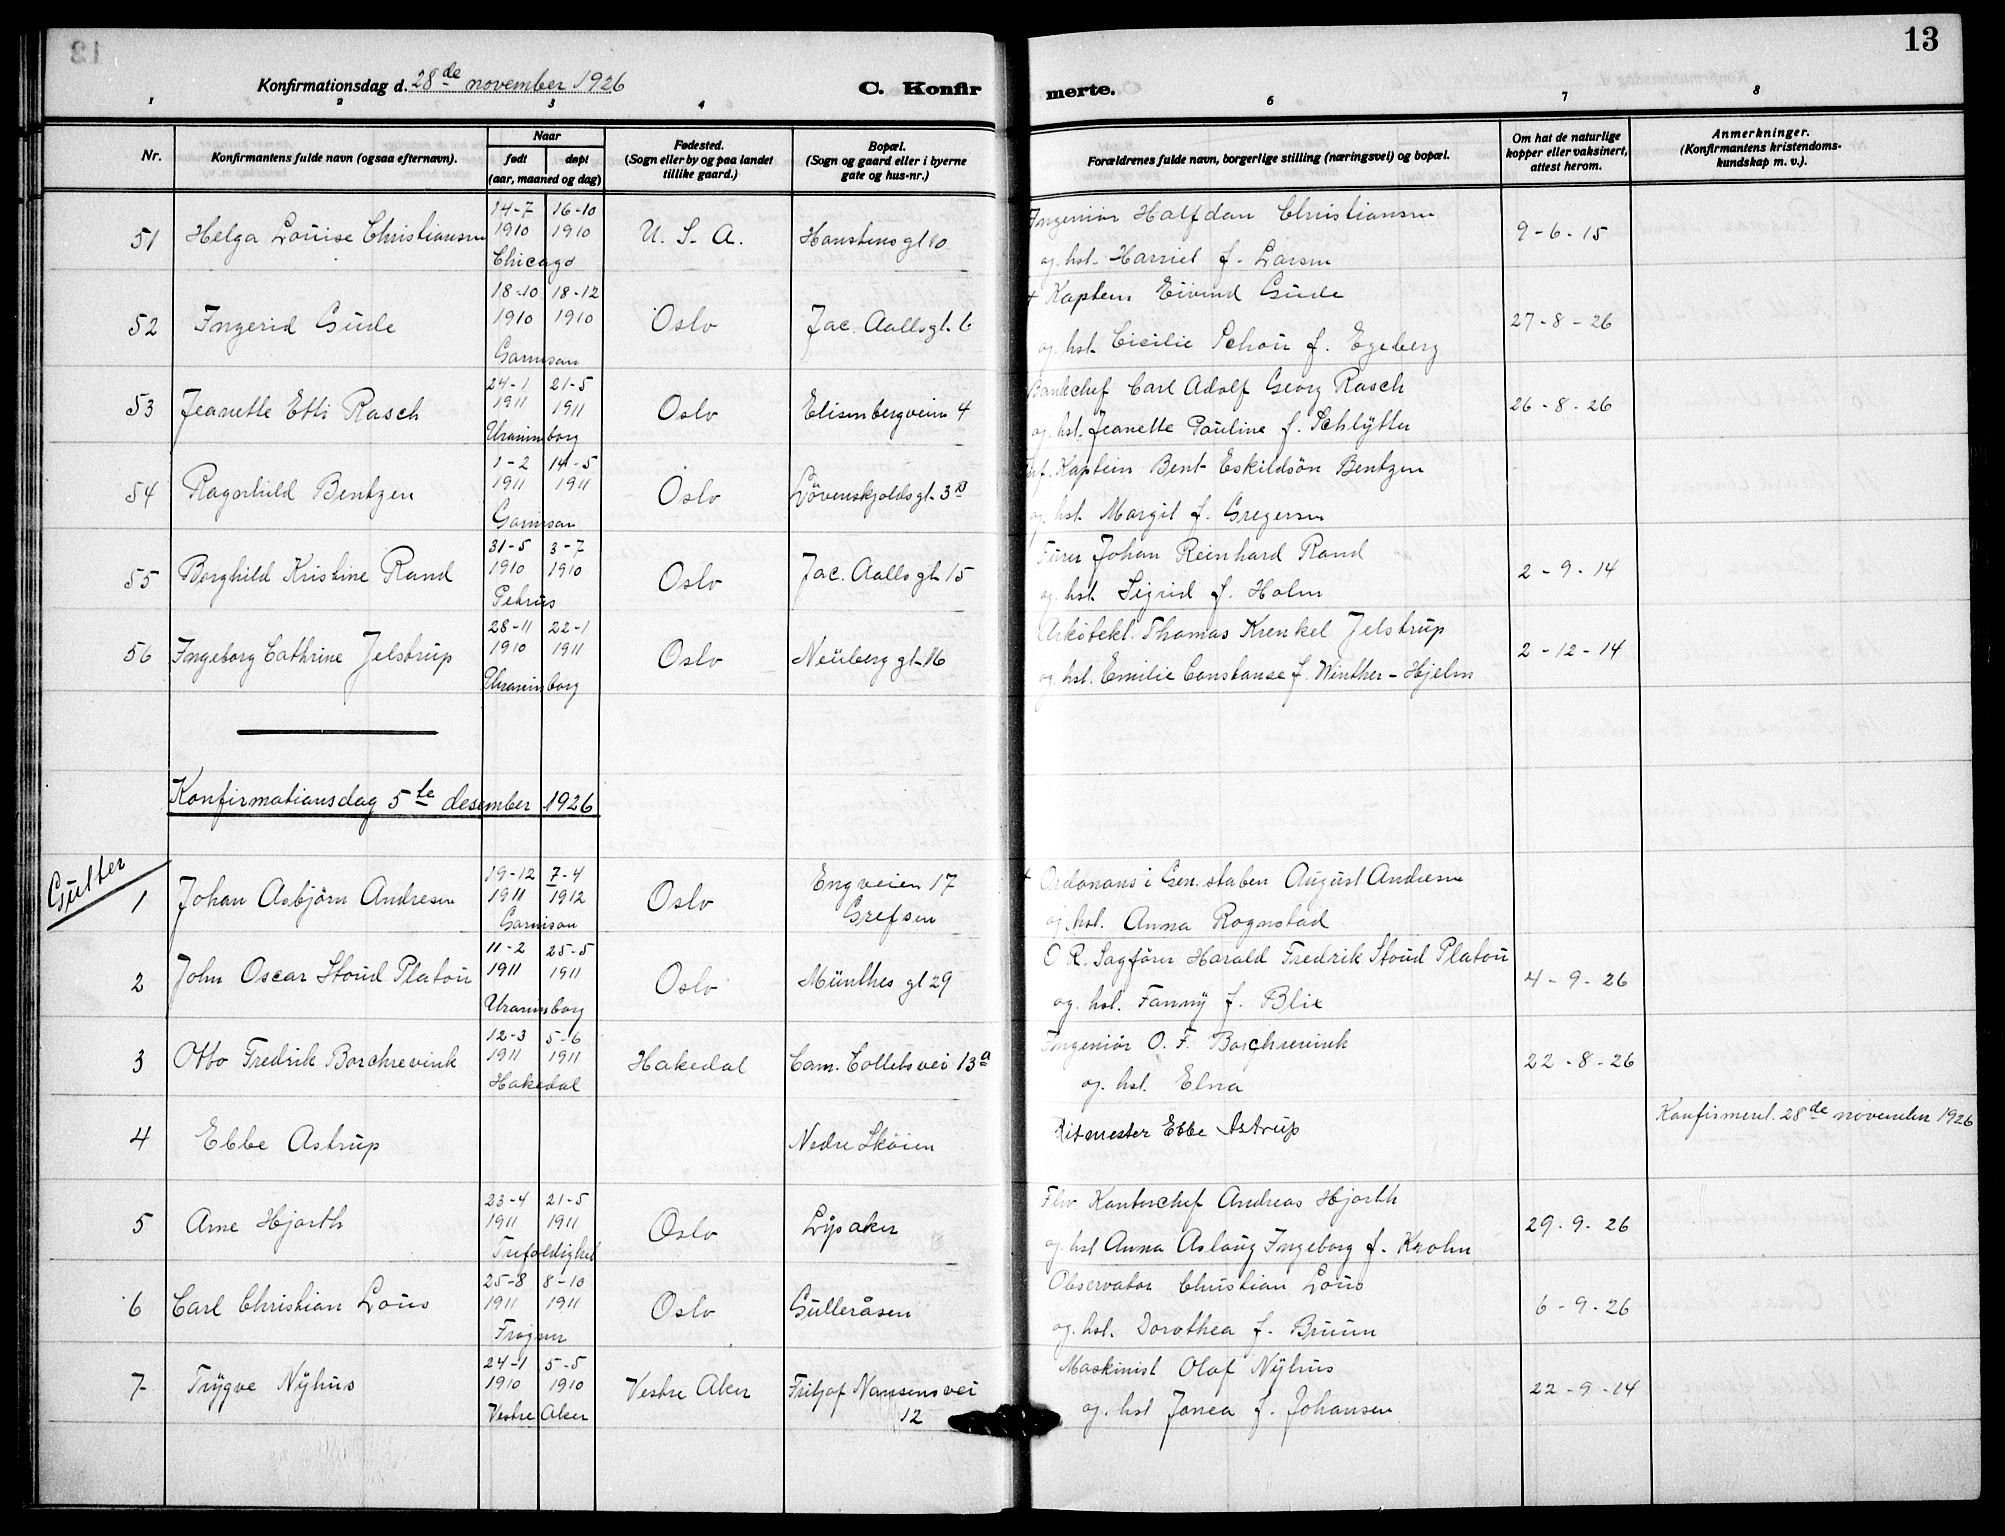 13
Konfirmationsdag d. 28de november 1926
C. Konfirmerte.
1 2 3 4 6 7 8
Nr.
Konfirmantens fulde navn (ogsaa efternavn).
Naar
født
døpt
(aar, maaned og dag)
Fødested.
(Sogn eller by og paa landet
tillike gaard.)
Bopæl.
(Sogn og gaard eller i byerne
gate og hus-nr.)
Forældrenes fulde navn, borgerlige stilling (næringsvei) og bopæl.
Om hat de naturlige
kopper eller vaksinert,
attest herom.
Anmerkninger.
(Konfirmantens kristendoms-
kundskap m. v.).
51 Helga Louise Christiansen 14-7 1910 16-10 1910 Chicago U. S. A. Hanstensgt 10 Ingeniör Halfdan Christiansen 9-6-15
og hst. Harriet f. Larsen
52 Ingerid Gude 18-10 1910 18-12 1910 Garnison Oslo Jac. Aallsgt. 6 + Kaptein Eivind Gude 27-8-26
og hst. Cicilie Schou f. Egeberg
53 Jeanette Etti Rasch 24-1 1911 21-5 1911 Uranienborg Oslo Elisenbergveien 4 Bankchef Carl Adolf Georg Rasch 26-8-26
og hst. Jeanette Pauline f. Schlytter
54 Ragnhild Bentzen 1-2 1911 14-5 1911 Garnison Oslo Lövenskjoldsgt. 3 Kaptein Bent Eskildsön Bentzen
og hst. Margit f. Gregersen
55 Borghild Kristine Rand 31-5 1910 3-7 1910 Petrus Oslo Jac. Aallsgt 15 Furer Johan Reinhard Rand 2-9-14
og hst. Sigrid f. Holm
56 Ingeborg Cathrine Jelstrup 28-11 1910 22-1 1911 Uranienborg Oslo Neuberggt. 16 Arkitekt. Thomas Krenkel Jelstrup 2-12-14
og hst. Emilie Constanse f. Winther-Hjelm
Konfirmationsdag 5te desember 1926
Gutter
1 Johan Asbjörn Andresen 19-12 1911 7-4 1912 Garnison Oslo Engveien 17 Grefsen + Ordonans i Gen. staben August Andresen
og hst. Anna Rognstad
2 John Oscar Stoud Platou 11-2 1911 25-5 1911 Uranienborg Oslo Munthes gt 29 O. R. Sagförer Harald Fredrik Stoud Platou 4-9-26
og hst. Fanny f. Blix
3 Otto Fredrik Borchrevink 12-3 1911 5-6 1911 Hakedal Hakedal Cam. Colletsvei 13a Ingeniör O. F. Borchrevink 22-8-26
og hst. Elna
4 Ebbe Astrup Nedre Sköien Ritmester Ebbe Astrup Konfirmert 28de november 1926
5 Arne Hjorth 23-4 1911 21-5 1911 Trefoldighet Oslo Lysaker Fhv Kontorchef Andreas Hjorth 29-9-26
og hst Anna Aslaug Ingeborg f. Krohn
6 Carl Christian Lous 25-8 1911 8-10 1911 Frogner Oslo Gulleråsen Observator Christian Lous 6-9-26
og hst. Dorothea f. Bruun
7 Trygve Nyhus 24-1 1910 5-5 1910 Vestre Aker Vestre Aker Fritjof Nansens vei 12 Maskinist Olaf Nyhus 22-9-14
og hst Jonea f. Johansen